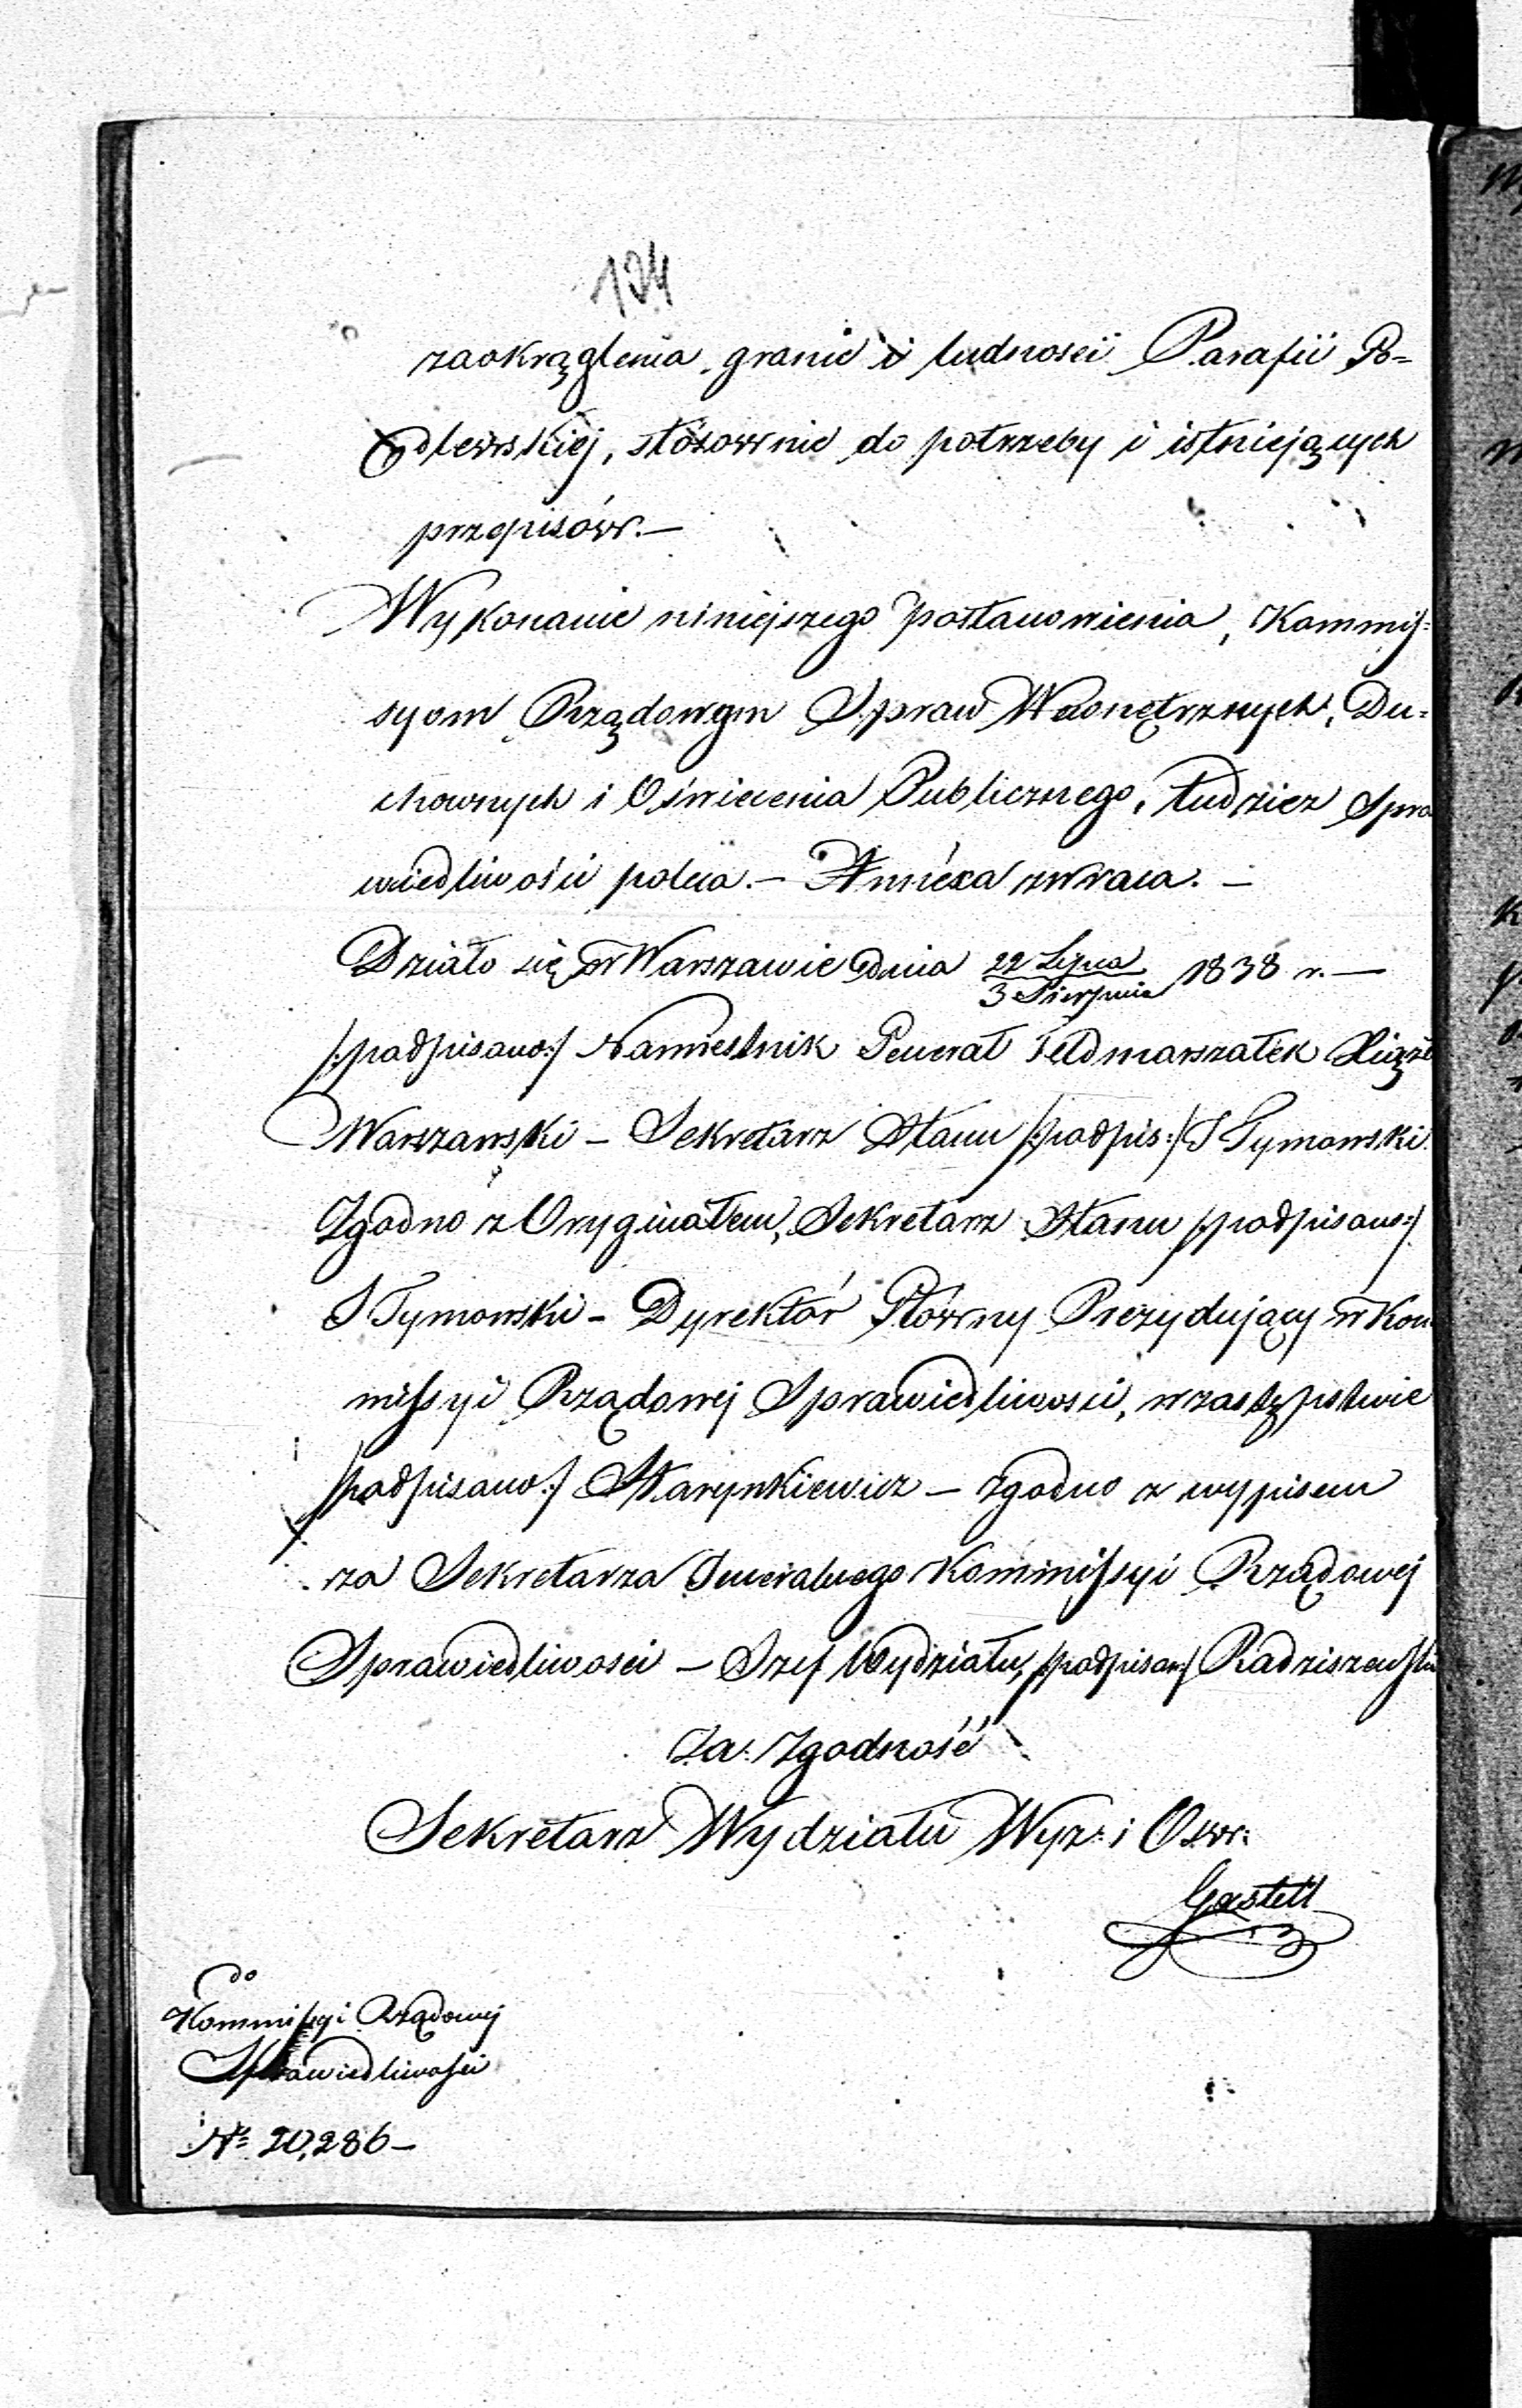 194
zaokrąglenia granic i ludności Parafii Po=
dlewskiej, stósownie do potrzeby i istniejących
przepisów.—
Wykonanie niniejszego postanowienia, Kommis=
syom Rządowym Spraw Wewnętrznych, Du=
chownych i Oświecenia Publicznego, tudzież Spra
wiedliwości poleca.— Annéxa zwraca.—
Działo się w Warszawie dnia 22 Lipca / 3 Sierpnia 1838 r.—
/:podpisano:/ Namiestnik Generał Feldmarszałek Xiąże
Warszawski — Sekretarz Stanu /:podpis:/ J Tymowski.
Zgodno z Oryginałem, Sekretarz Stanu /:podpisano:/
J. Tymowski — Dyrektór Główny Prezydujący w Kom
missyi Rządowej Sprawiedliwości, w zastępstwie
/:podpisano:/ Starynkiewicz — Zgodno z wypisem
za Sekretarza Generalnego Kommissyi Rządowej
Sprawiedliwości — Szef Wydziału, /:podpisan:/ Radziszewski
Za Zgodność
Sekretarz Wydziału Wyz: i Ośw:
Gastell
do
Kommissyi Rządowej
Sprawiedliwości
No 20,286—